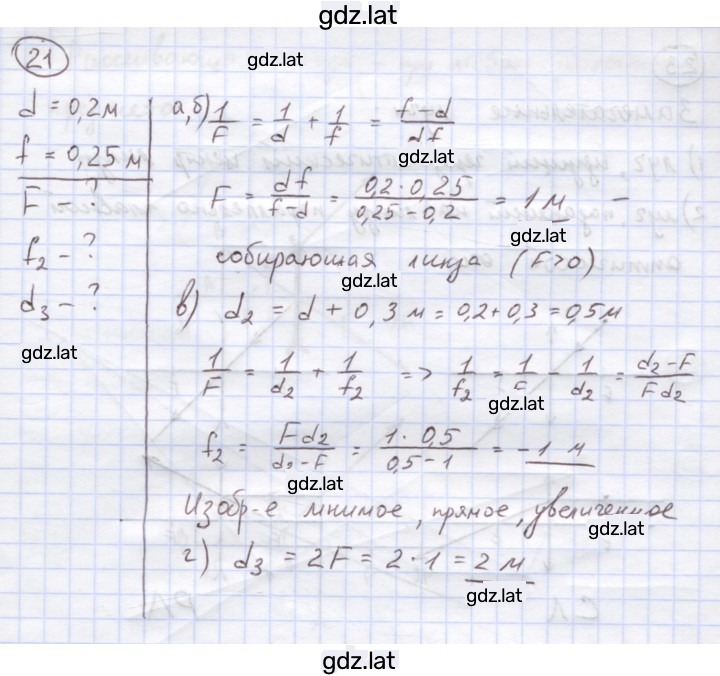 gdz.lat
21
gdz.lat
d = 0,2 м
f = 0,25 м
F - ?
f₂ - ?
d₃ - ?
gdz.lat
а,б) 1/F = 1/d + 1/f = (f-d)/(df)
gdz.lat
F = df/(f-d) = (0,2·0,25)/(0,25-0,2) = 1 м –
gdz.lat
собирающая линза (F>0)
gdz.lat
в) d₂ = d + 0,3 м = 0,2+0,3 = 0,5 м
1/F = 1/d₂ + 1/f₂ => 1/f₂ = 1/F - 1/d₂ = (d₂-F)/(Fd₂)
gdz.lat
f₂ = Fd₂/(d₂-F) = (1·0,5)/(0,5-1) = -1 м
gdz.lat
Изобр-е мнимое, прямое, увеличенное
gdz.lat
г) d₃ = 2F = 2·1 = 2 м
gdz.lat
gdz.lat